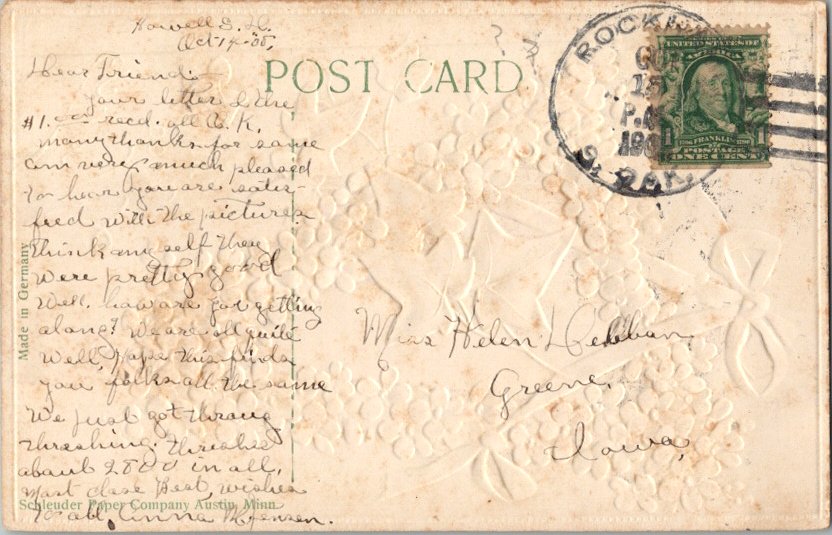 Howell S. D.
Oct 14-08,
Dear Friend:-
Your letter & the
#1.00 recd. all O. K.
many thanks for same
am very much pleased
to hear you are satis-
fied with the pictures
think myself they
were pretty good
Well. how are you getting
along? We are all quite
well, hope this finds
you folks all the same
We just got throug
thrashing, thrashed
about 2800 in all,
Must close Best wishes
to all, Anna M Jensen.
POST CARD
Made in Germany
Schleuder Paper Company Austin, Minn.
ROCKHAM
15
P.M.
190
S. DAK.
UNITED STATES OF
AMERICA
1 FRANKLIN 1
POSTAGE
ONE CENT
Miss Helen
Greene,
Iowa,